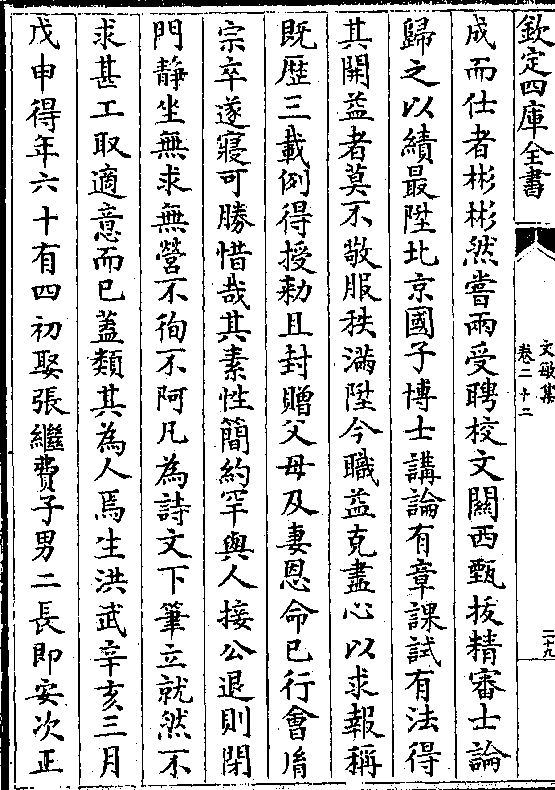 欽定四庫全書
文敏集
卷二十二
二十九
成而仕者彬彬然嘗兩受聘校文關西甄拔精審士論
歸之以績最陞北京國子博士講論有章課試有法得
其開益者莫不敬服秩滿陞今職益克盡心以求報稱
既歴三載例得授勅且封贈父母及妻恩命已行會
宗卒遂寢可勝惜哉其素性簡約罕與人接公退則閉
門静坐無求無營不徇不阿凡為詩文下筆立就然不
求甚工取適意而已蓋類其為人焉生洪武辛亥三月
戊申得年六十有四初娶張繼費子男二長即安次正